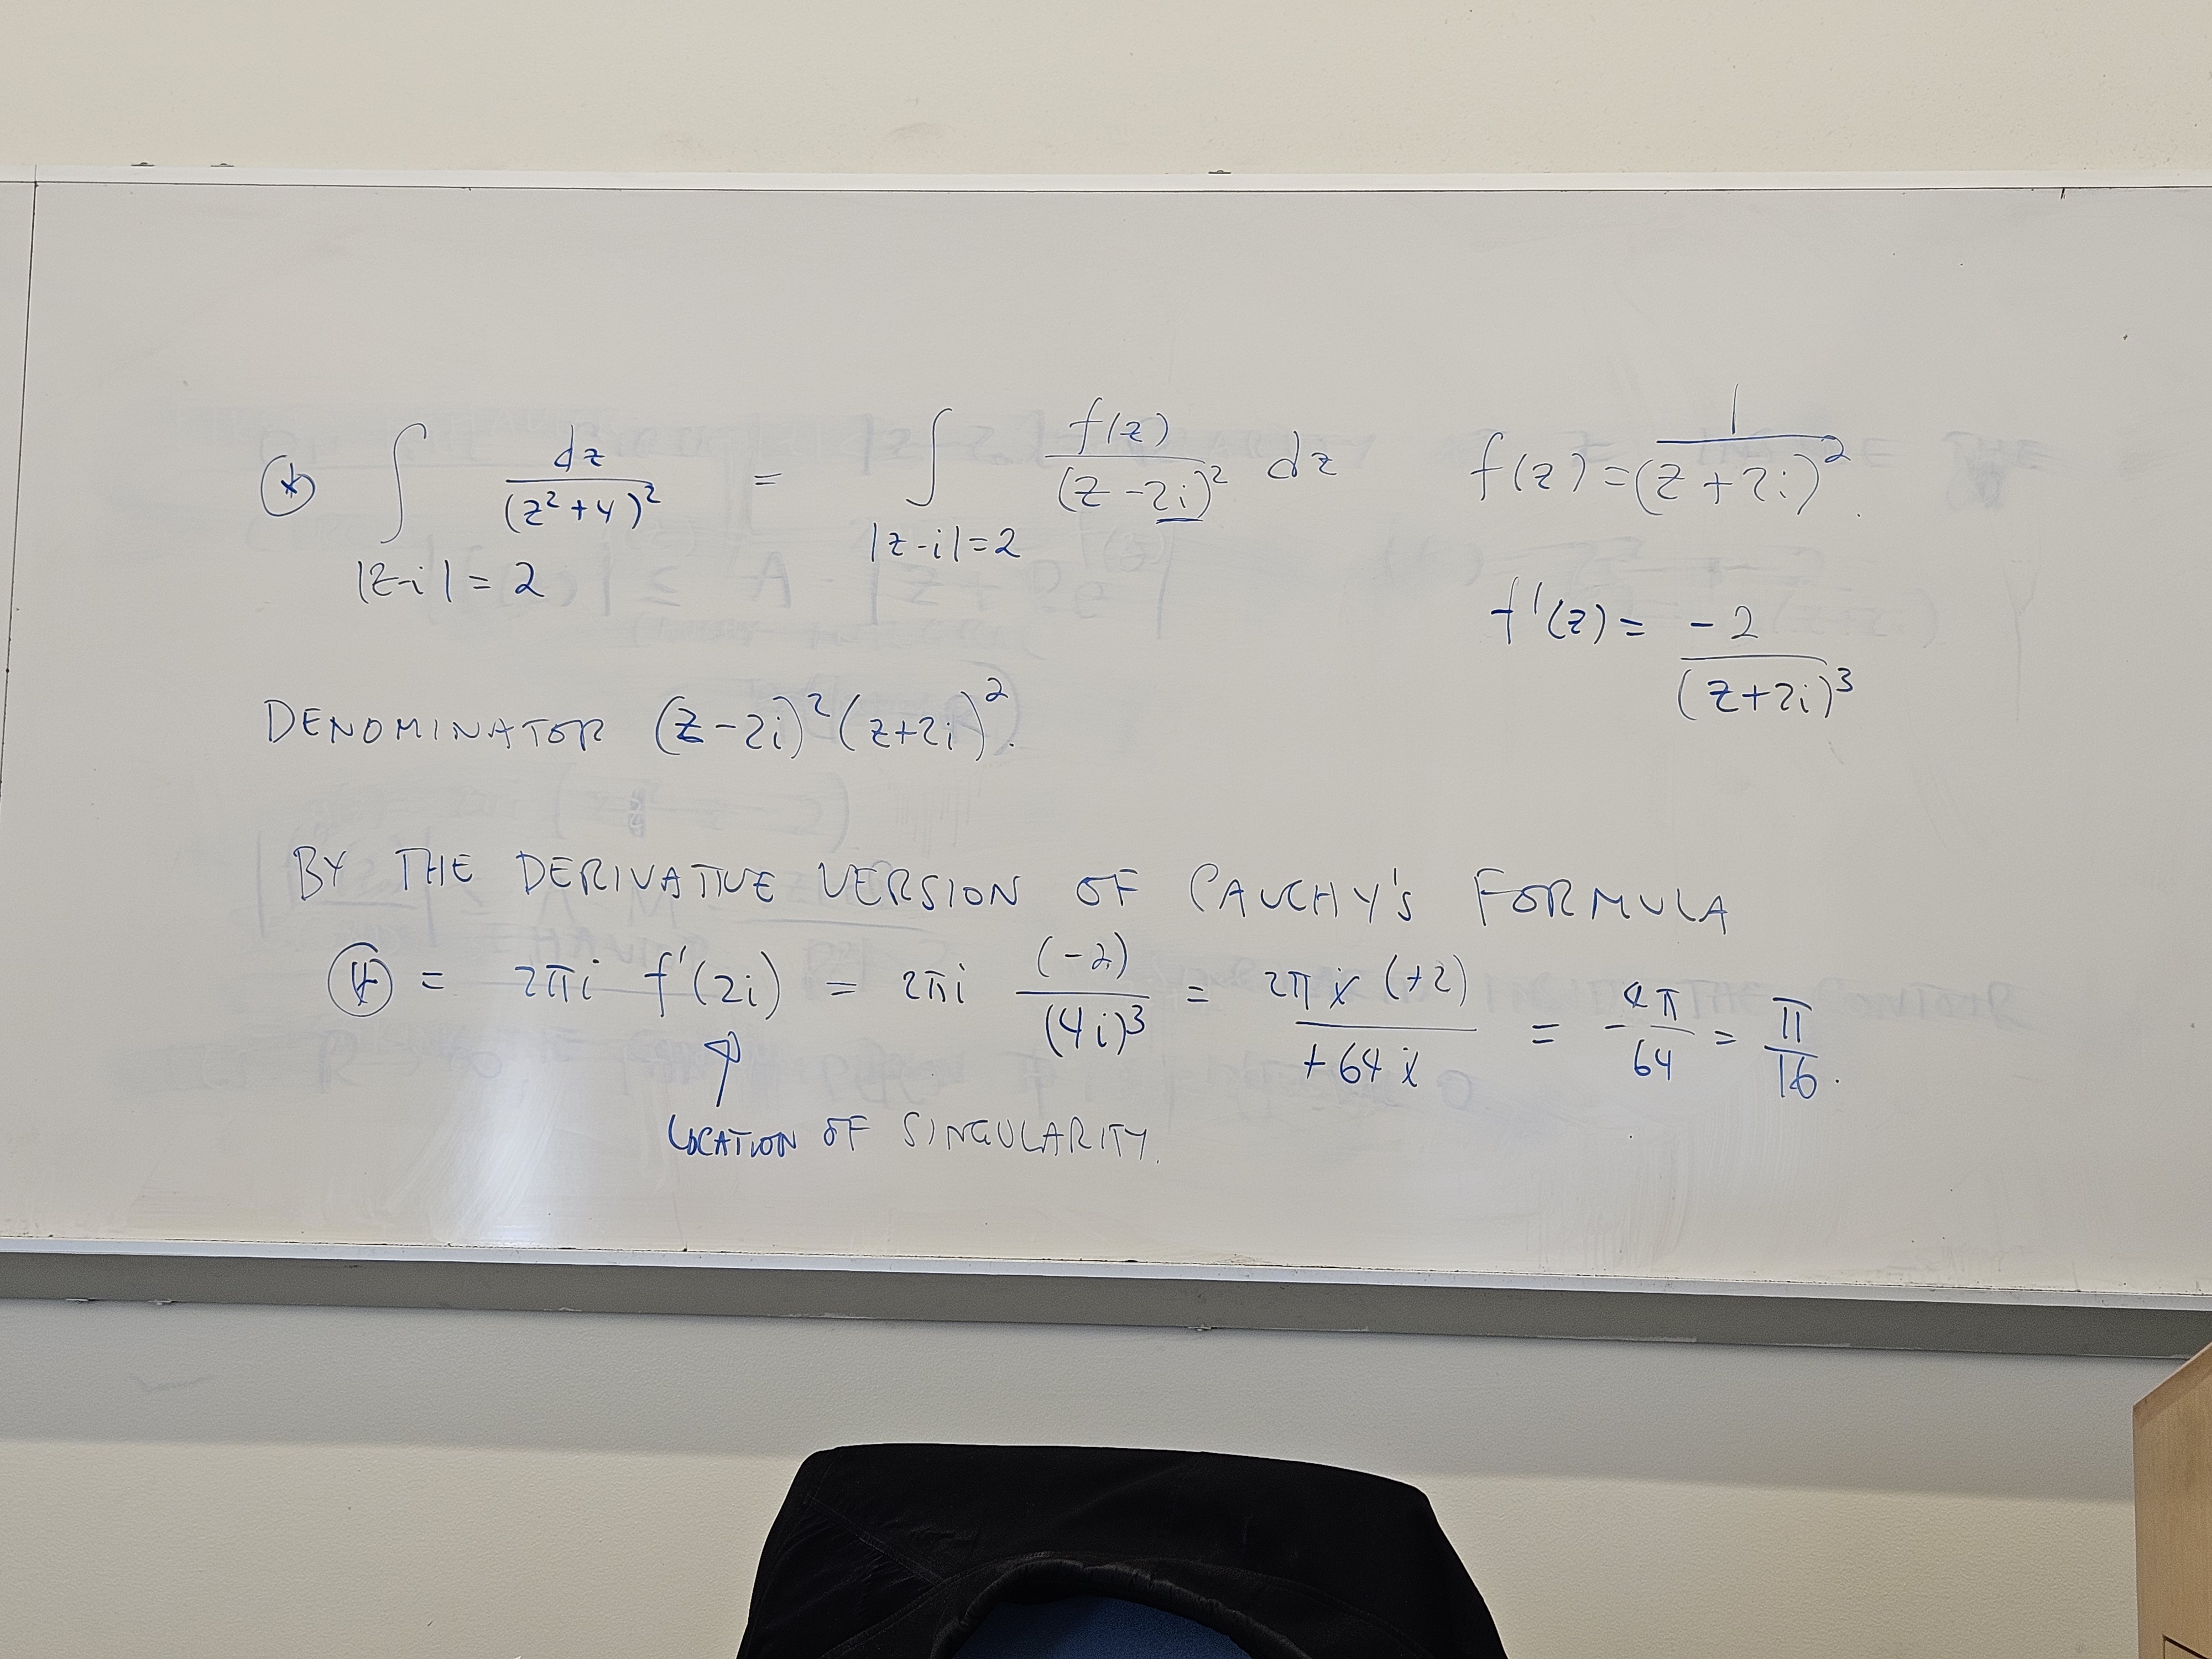 (*) ∫ dz/(z²+4)² = ∫ f(z)/(z-2i)² dz f(z)=1/(z+2i)².
|z-i|=2 |z-i|=2
f'(z)= -2/(z+2i)³
DENOMINATOR (z-2i)²(z+2i)².
BY THE DERIVATIVE VERSION OF CAUCHY'S FORMULA
(*) = 2πi f'(2i) = 2πi (-2)/(4i)³ = 2πi(+2)/+64i = 4π/64 = π/16.
LOCATION OF SINGULARITY.